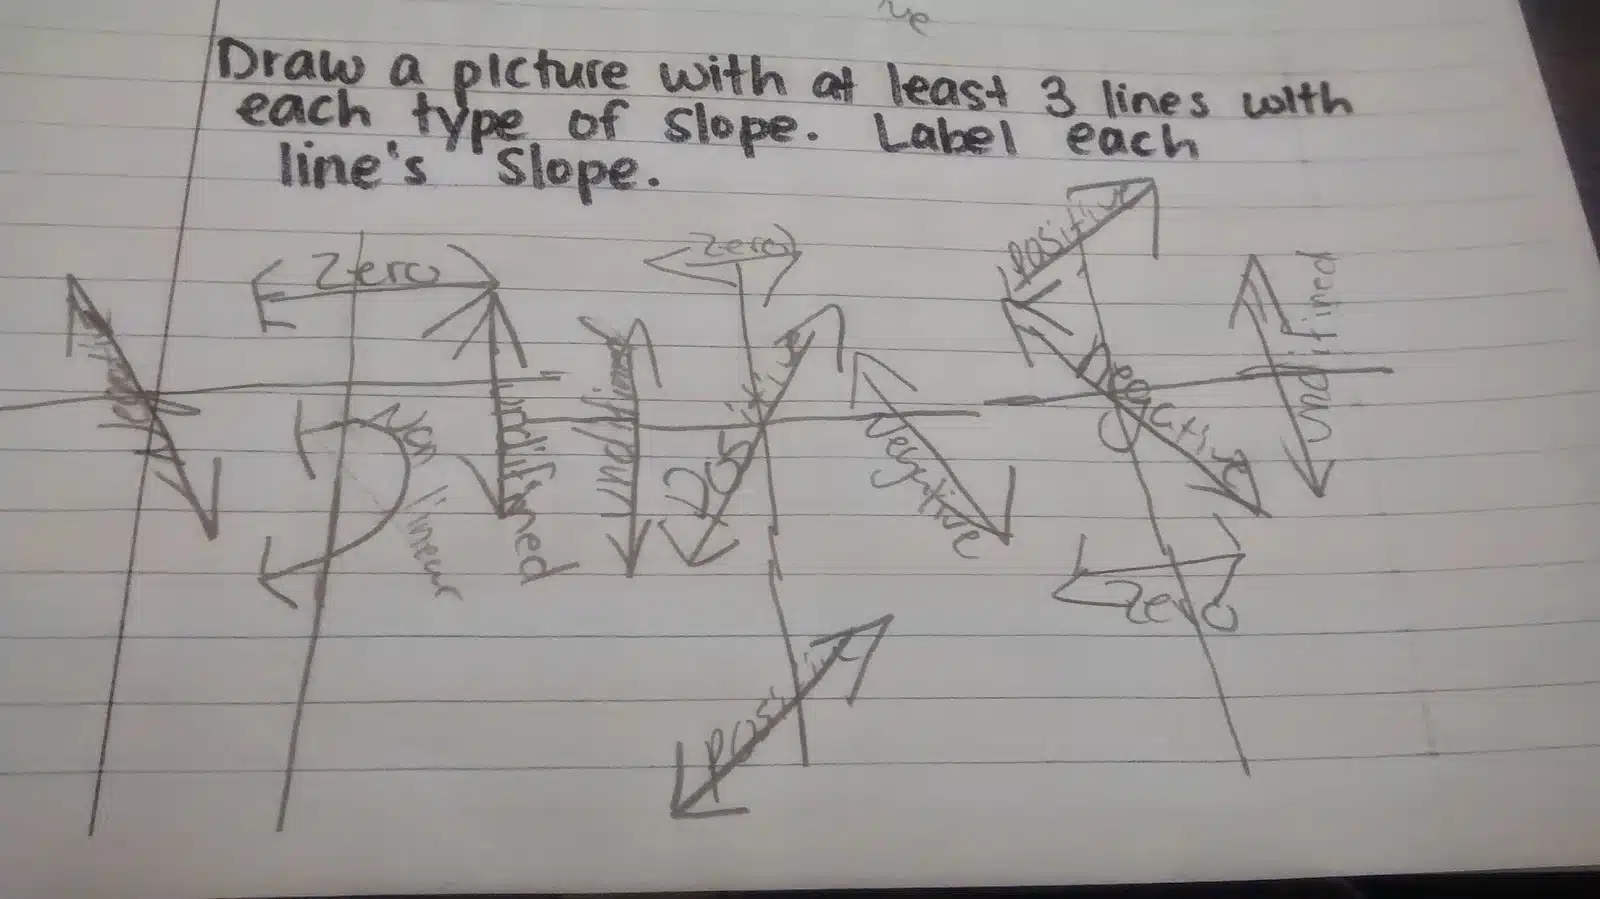 ve
Draw a picture with at least 3 lines with
each type of slope. Label each
line's slope.
Zero
Zero
Positive
undifined
Negative
Non linear
undifined
undifined
Positive
Negative
Negative
Zero
Positive